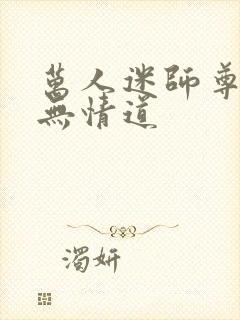 萬人迷師尊
無情道
濁妍